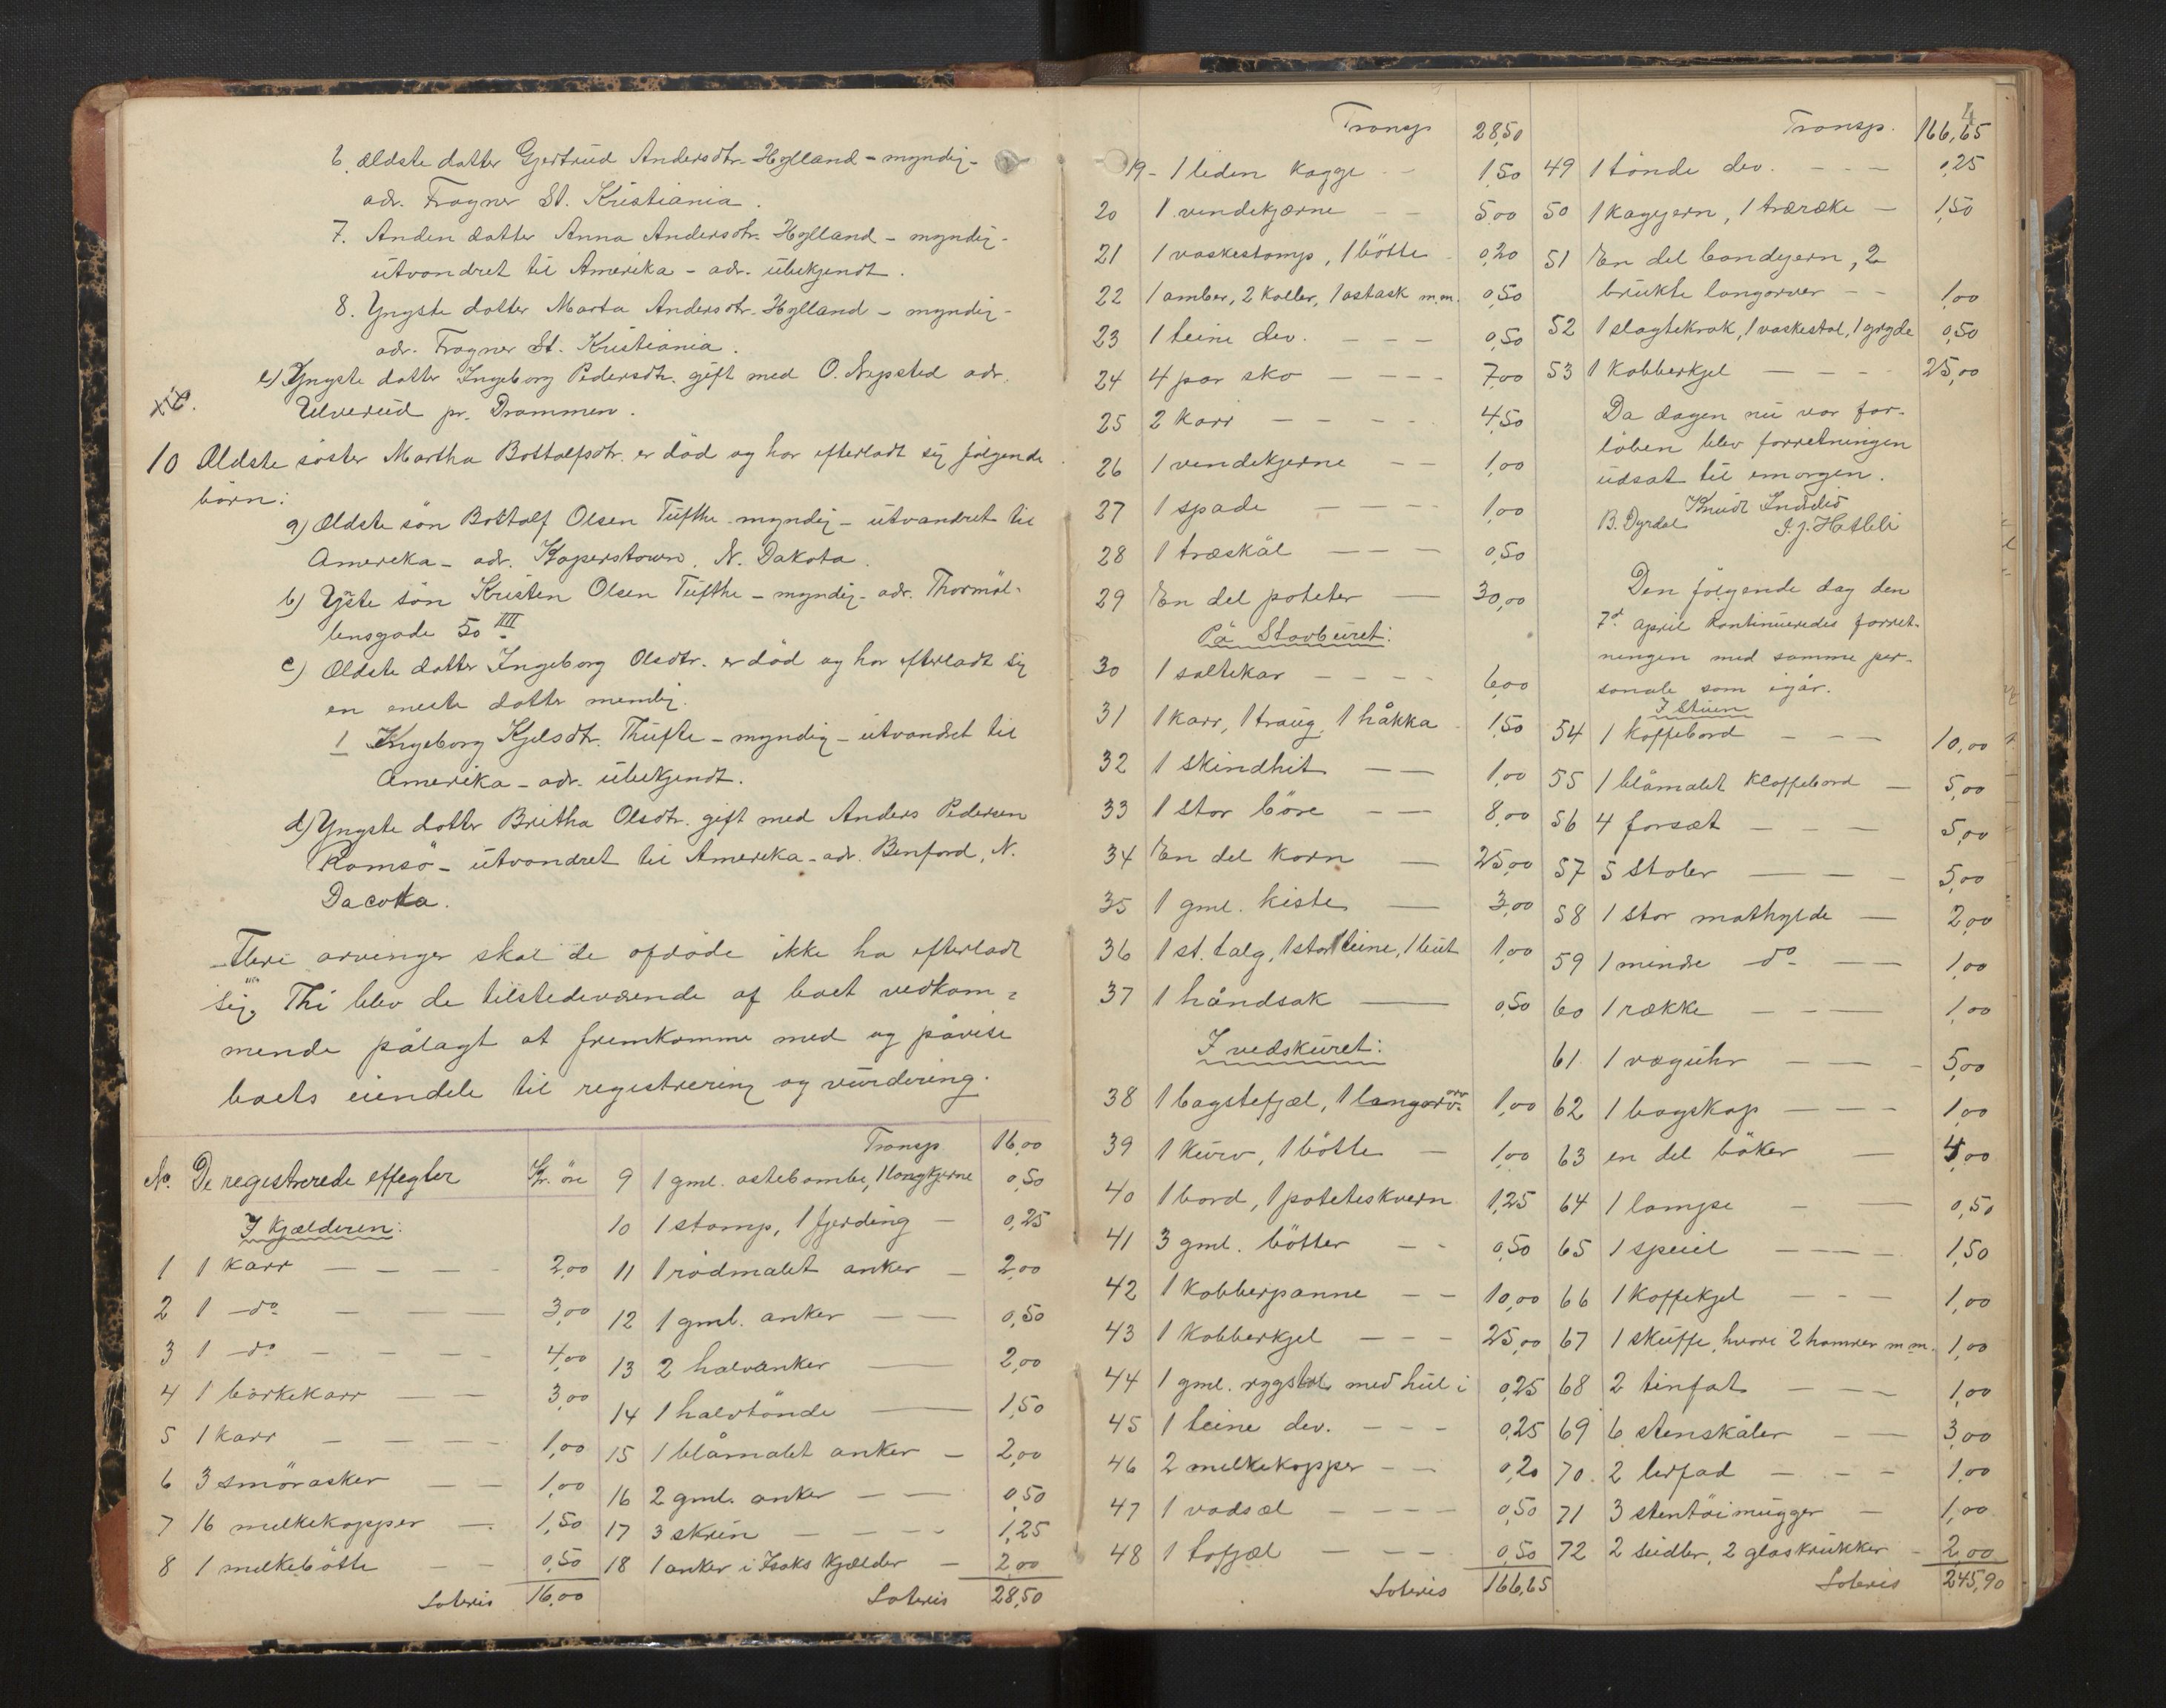 6. ældste datter Gjertrud Andersdtr. Hylland - myndig -
adr. Frogner St. Kristiania.
7. Anden datter Anna Andersdtr. Hylland - myndig -
utvandret til Amerika - adr. ubekjendt.
8. Yngste datter Marta Andersdtr. Hylland - myndig -
adr. Frogner St. Kristiania.
e) Yngste datter Ingeborg Pedersdtr. gift med O. Nepsted adr.
Ulverud pr. Drammen.
10 Ældste søster Martha Bottolfsdtr. er død og har efterladt sig følgende
børn:
a) Ældste søn Bottolf Olsen Tufthe myndig - utvandret til
Amerika - adr. Koperstown, N. Dakota.
b) Yste søn Kristen Olsen Tufthe - myndig - adr. Thormøl-
lensgade 50 IIII
c) Ældste datter Ingeborg Olsdtr. er død og har efterladt sig
en eneste datter nemlig.
1 Ingeborg Kjelsdtr. Thufte - myndig - utvandret til
Amerika - adr. ubekjendt.
d) Yngste datter Britha Olsdtr. gift med Anders Pedersen
Romsø - utvandret til Amerika - adr. Benford, N.
Dacota.
Flere arvinger skal de afdøde ikke ha efterladt
sig. Thi blev de tilstedeværende af boet vedkom-
mende pålagt at fremkomme med og påvise
boets eiendele til registrering og vurdering.
No. De registrerede effegter Kr. öre
I kjælderen:
1 1 karr - - - - 2,00
2 1 do - - - 3,00
3 1 do - - - - 4,00
4 1 børkekarr - - 3,00
5 1 karr - - - - 1,00
6 3 smörasker - - 1,00
7 16 melkekopper - 1,50
8 1 melkebøtte - - 0,50
Lateris 16,00
Transp 16,00
9 1 gml. ostebombe, 1 longkjerne 0,50
10 1 stamp, 1 fjerding - 0,25
11 1 rødmalet anker - 2,00
12 1 gml. anker - - 0,50
13 2 halvanker - 2,00
14 1 halvtönde - 1,50
15 1 blåmalet anker - 2,00
16 2 gml. anker - - 0,50
17 3 skrin - - - - 1,25
18 1 anker i Isaks kjælder - 2,00
Lateris 28,50
Transp 28,50
19 - 1 liden kagge - - 1,50
20 1 vendekjærne - - 5,00
21 1 vaskestamp, 1 bötte - 0,20
22 1 amber, 2 koller, 1 ostask m.m. 0,50
23 1 teine dev. - - - 0,50
24 4 par sko - - - - 7,00
25 2 karr - - - - 4,50
26 1 vendekjerne - - 1,00
27 1 spade - - - 1,00
28 1 træskål - - - 0,50
29 En del poteter - 30,00
På Stavburet:
30 1 saltekar - - - - 6,00
31 1 karr, 1 traug, 1 håkka - 1,50
32 1 skindhit - - 1,00
33 1 stor böre - - 8,00
34 En del korn - 25,00
35 1 gml. kiste - 3,00
36 1 st. talg, 1 stor teine, 1 but 1,00
37 1 håndsak - 0,50
I vedskuret:
38 1 bagstefjæl, 1 langorv 1,00
39 1 kurv, 1 bötte - 1,00
40 1 bord, 1 poteteskvern 1,25
41 3 gml. bötter - - 0,50
42 1 kobberpanne - - 10,00
43 1 kobberkjel - - - 25,00
44 1 gml. rygstol med hul i 0,25
45 1 teine dev. - - - 0,25
46 2 melkekopper - - 0,20
47 1 vadsæl - - - - 0,50
48 1 tofjæl - - - 0,50
Lateris 166,65
4
Transp. 166,65
49 1 tönde dev. - - - 0,25
50 1 kagejern, 1 træræke - 1,50
51 En del bandjern, 2
brukte langorver - - 1,00
52 1 slagtekrak, 1 vaskestol, 1 gryde 0,50
53 1 kobberkjel - - - 25,00
Da dagen nu var for-
löben blev forretningen
udsat til imorgen.
Knudt
B. Dyrdal I. J. Hatleli
Den følgende dag den
7d april kontinueredes forret-
ningen med samme per-
sonale som igår.
I Stuen
54 1 kaffebord - - - 10,00
55 1 blåmalet klaffebord - 5,00
56 4 forsæt - - - 5,00
57 5 stoler - - - 5,00
58 1 stor mathylde - 2,00
59 1 mindre do - 1,00
60 1 række - - - 1,00
61 1 væguhr - - - 5,00
62 1 bagskap - - - 1,00
63 en del böker - 4,00
64 1 lampe - - 0,50
65 1 speiel - - - - 1,50
66 1 kaffekjel - - - 1,00
67 1 skuffe, hvori 2 hamrer m.m. 1,00
68 2 tinfat - - - 1,00
69 6 stenskåler - - 3,00
70. 2 lerfad - - - 1,00
71 3 stentöimugger - 1,00
72 2 seidler, 2 glaskrukker - 2,00
Lateris 245,90